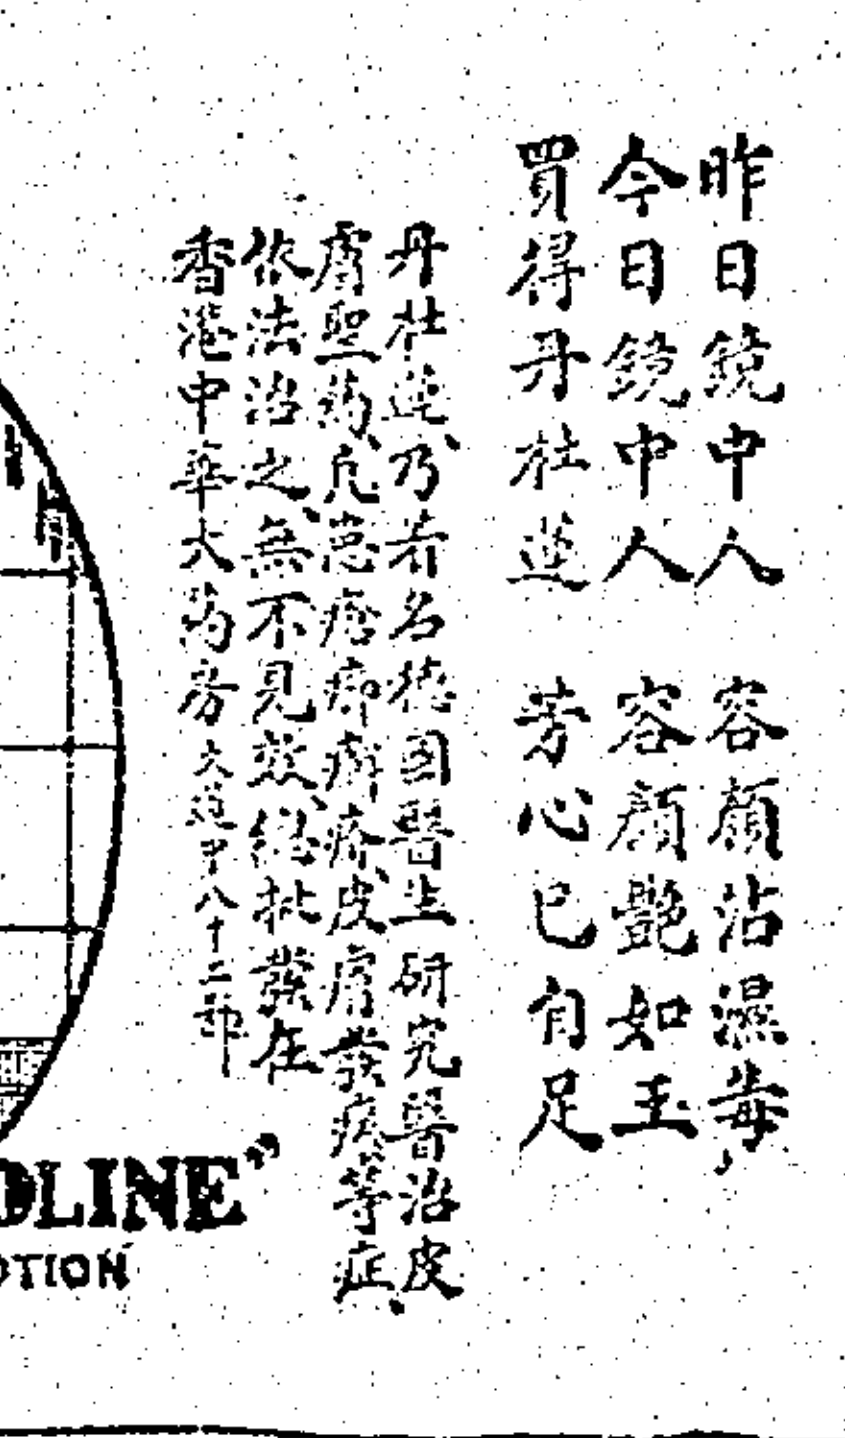 昨日鏡中人 容顏沾濕毒,
今日鏡中人 容顏艷如玉
買得丹杜蓮 芳心已自足
丹杜蓮、乃著名德国醫生研究醫治皮
膚聖药、凡患痦痱癬疥、皮膚發痰等症、
依法治之、無不見效、總批發在
香港中華大药房大道中八十二號
OLINE”
OTION